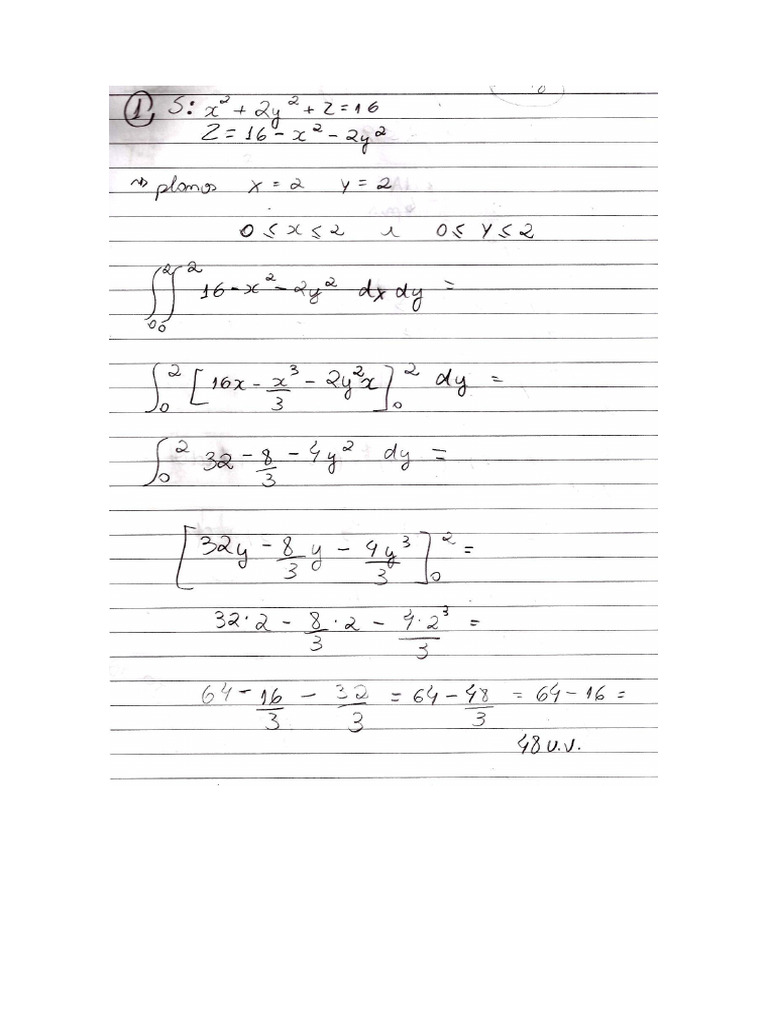 1, S: x² + 2y² + z = 16
z = 16 - x² - 2y²
⇝ planos x = 2 y = 2
0 ≤ x ≤ 2 e 0 ≤ y ≤ 2
∫₀² ∫₀² 16 - x² - 2y² dx dy =
∫₀² [16x - x³/3 - 2y²x]₀² dy =
∫₀² 32 - 8/3 - 4y² dy =
[32y - 8/3 y - 4y³/3]₀² =
32·2 - 8/3·2 - 4·2³/3 =
64 - 16/3 - 32/3 = 64 - 48/3 = 64 - 16 =
48 u.v.